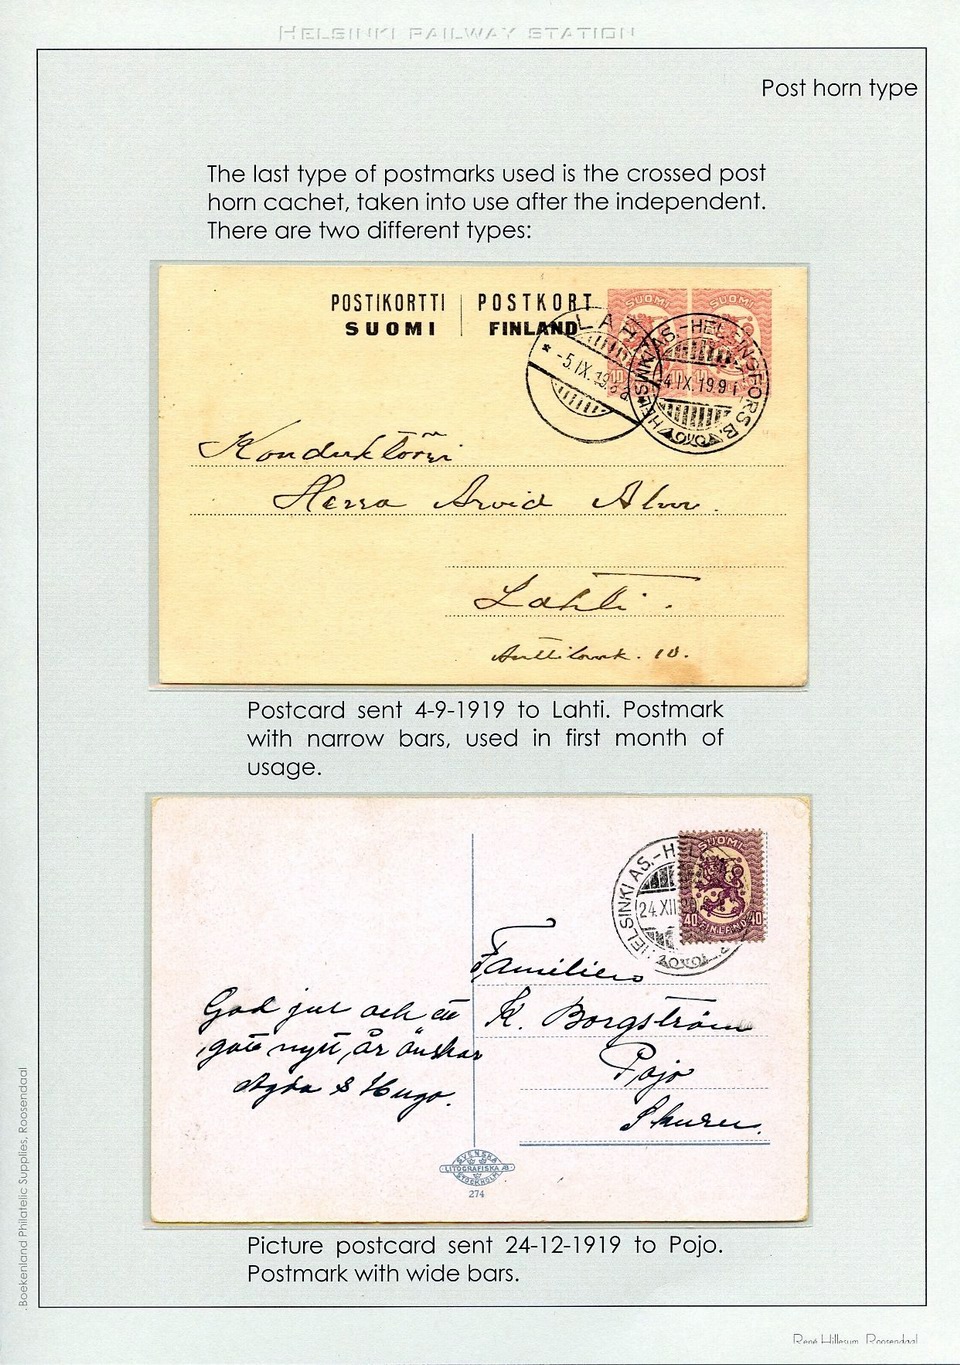 HELSINKI RAILWAY STATION
Post horn type
The last type of postmarks used is the crossed post
horn cachet, taken into use after the independent.
There are two different types:
POSTIKORTTI | POSTKORT
SUOMI | FINLAND
SUOMI SUOMI
LAHTI
-5.IX.19
HELSINKI AS.-HELSINGFORS B.
4.IX.19.9
Konduktören
Herra Arvid Alm.
Lahti.
10.
Postcard sent 4-9-1919 to Lahti. Postmark
with narrow bars, used in first month of
usage.
HELSINKI AS.-HEL
24.XII
SUOMI
40 FINLAND 40
Familien
K. Borgström
Pojo
Skuru.
God jul och ett
gott nytt år önskar
Agda & Hugo.
SVENSKA
LITOGRAFISKA AB.
STOCKHOLM
274
Picture postcard sent 24-12-1919 to Pojo.
Postmark with wide bars.
.Boekenland Philatelic Supplies, Roosendaal
René Hillesum, Roosendaal